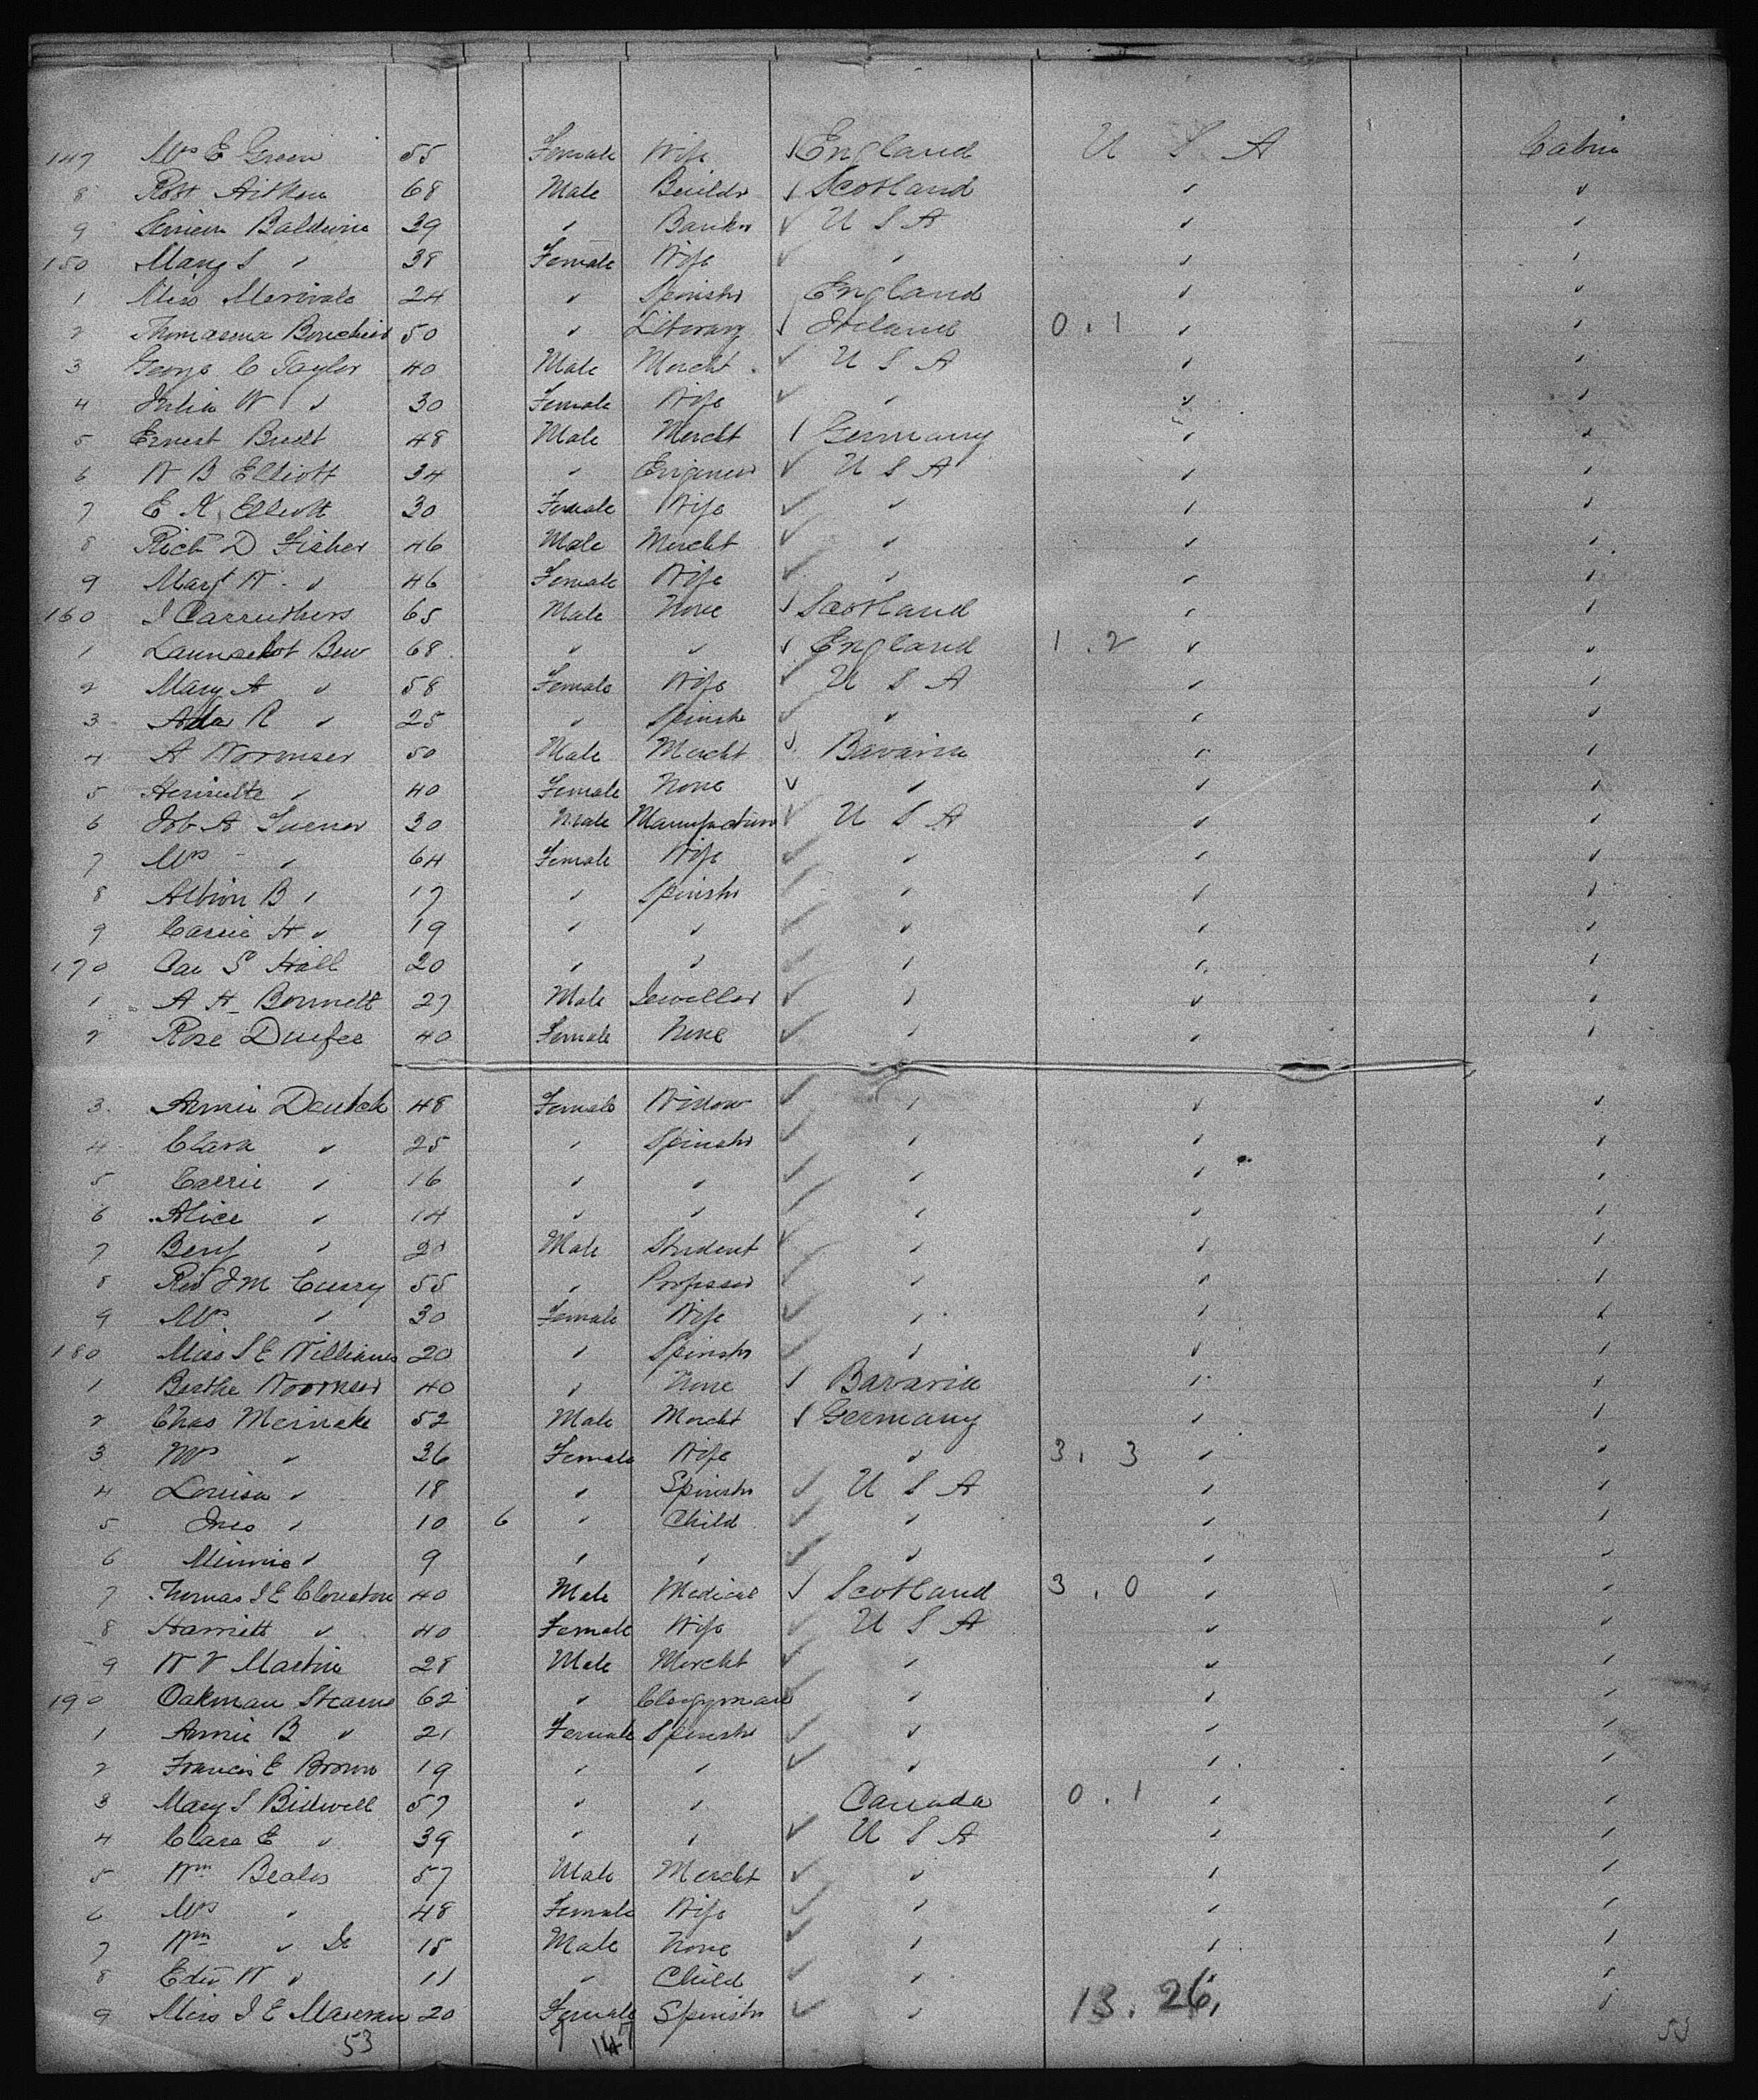 147 Mrs E Green 55 Female Wife England U S A Cabin
8 Robt Aitken 68 Male Builder Scotland " "
9 Baldwin 39 " Banker U S A " "
150 Mary S " 38 Female Wife " " "
1 Miss Merivale 24 " Spinstr England " "
2 Thomasina 50 " Literary Ireland 0.1 " "
3 George C Taylor 40 Male Mercht U S A " "
4 Julia W " 30 Female Wife " " "
5 Ernest 48 Male Mercht Germany " "
6 W B Elliott 34 " Engineer U S A " "
7 E K Elliott 30 Female Wife " " "
8 Richd D Fisher 46 Male Mercht " " "
9 Margt W " 46 Female Wife " " "
160 J Carruthers 65 Male None Scotland " "
1 Launcelot Bew 68 " " England 1.2 " "
2 Mary A " 58 Female Wife U S A " "
3 Ada R " 25 " Spinstr " " "
4 A Wormser 50 Male Mercht Bavaria " "
5 Henriette " 40 Female None " " "
6 Job A Turner 30 Male Manufacturer U S A " "
7 Mrs " 64 Female Wife " " "
8 Albion B " 17 " Spinstr " " "
9 Carrie H " 19 " " " " "
170 S Hall 20 " " " " "
1 A H Bonnett 27 Male Jeweller " " "
2 Rose Durfee 40 Female None " " "
3 Annie Deutsch 48 Female Widow " " "
4 Clara " 25 " Spinstr " " "
5 Carrie " 16 " " " " "
6 Alice " 14 " " " " "
7 Benj " 20 Male Student " " "
8 Rev J M Curry 55 " Professor " " "
9 Mrs " 30 Female Wife " " "
180 Miss S E Williams 20 " Spinstr " " "
1 Berthe Wormser 40 " None Bavaria " "
2 Chas Meineke 52 Male Mercht Germany " "
3 Mrs " 36 Female Wife " 3.3 " "
4 Louisa " 18 " Spinstr U S A " "
5 Ines " 10 6 " Child " " "
6 Minnie " 9 " " " " "
7 Thomas S E Clouston 40 Male Medical Scotland 3.0 " "
8 Harriett " 40 Female Wife U S A " "
9 W V Martin 28 Male Mercht " " "
190 Oakman Stearns 62 " Clergyman " " "
1 Annie B " 21 Female Spinstr " " "
2 Francis E Brown 19 " " " " "
3 Mary S Bidwell 57 " " Canada 0.1 " "
4 Clara E " 39 " " U S A " "
5 Wm Beales 57 Male Mercht " " "
6 Mrs " 48 Female Wife " " "
7 Wm " Jr 15 Male None " " "
8 Edw W " 11 " Child " " "
9 Miss J E 20 Female Spinstr " 13.26 " "
53 147 53